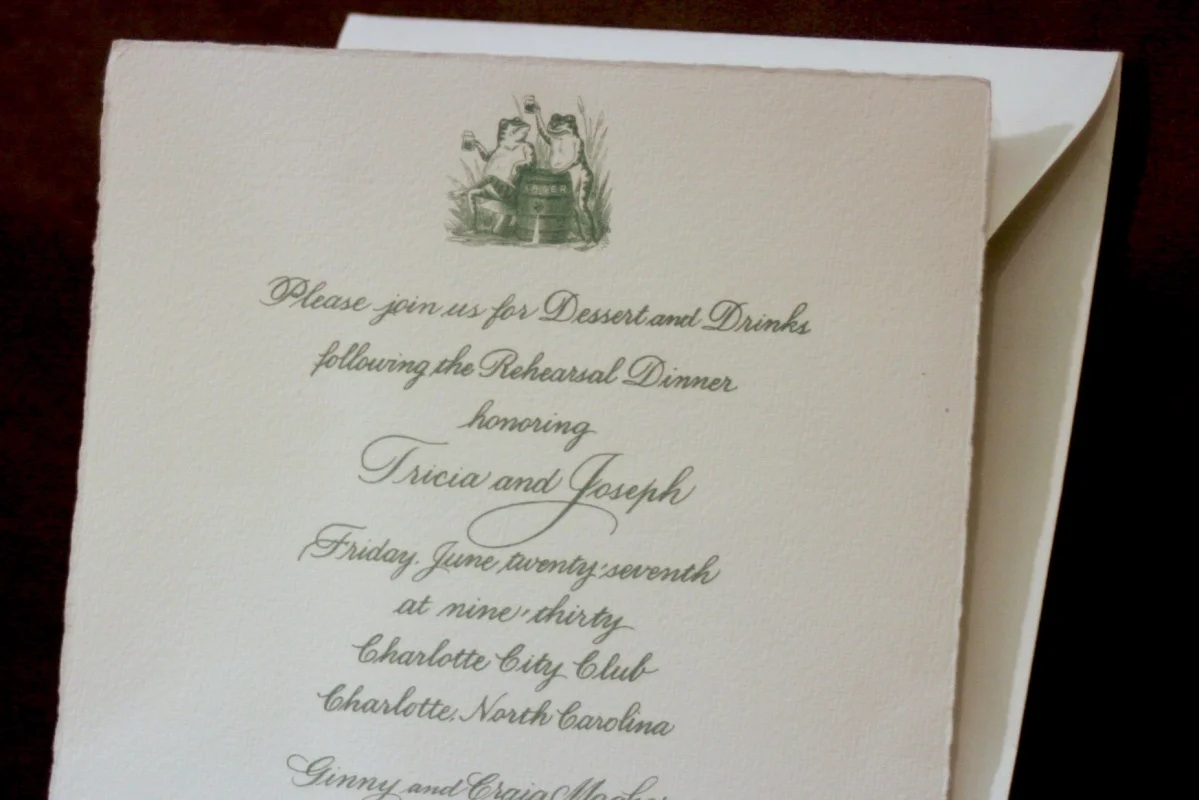 LAGER
Please join us for Dessert and Drinks
following the Rehearsal Dinner
honoring
Tricia and Joseph
Friday, June twenty-seventh
at nine-thirty
Charlotte City Club
Charlotte, North Carolina
Ginny and Craig